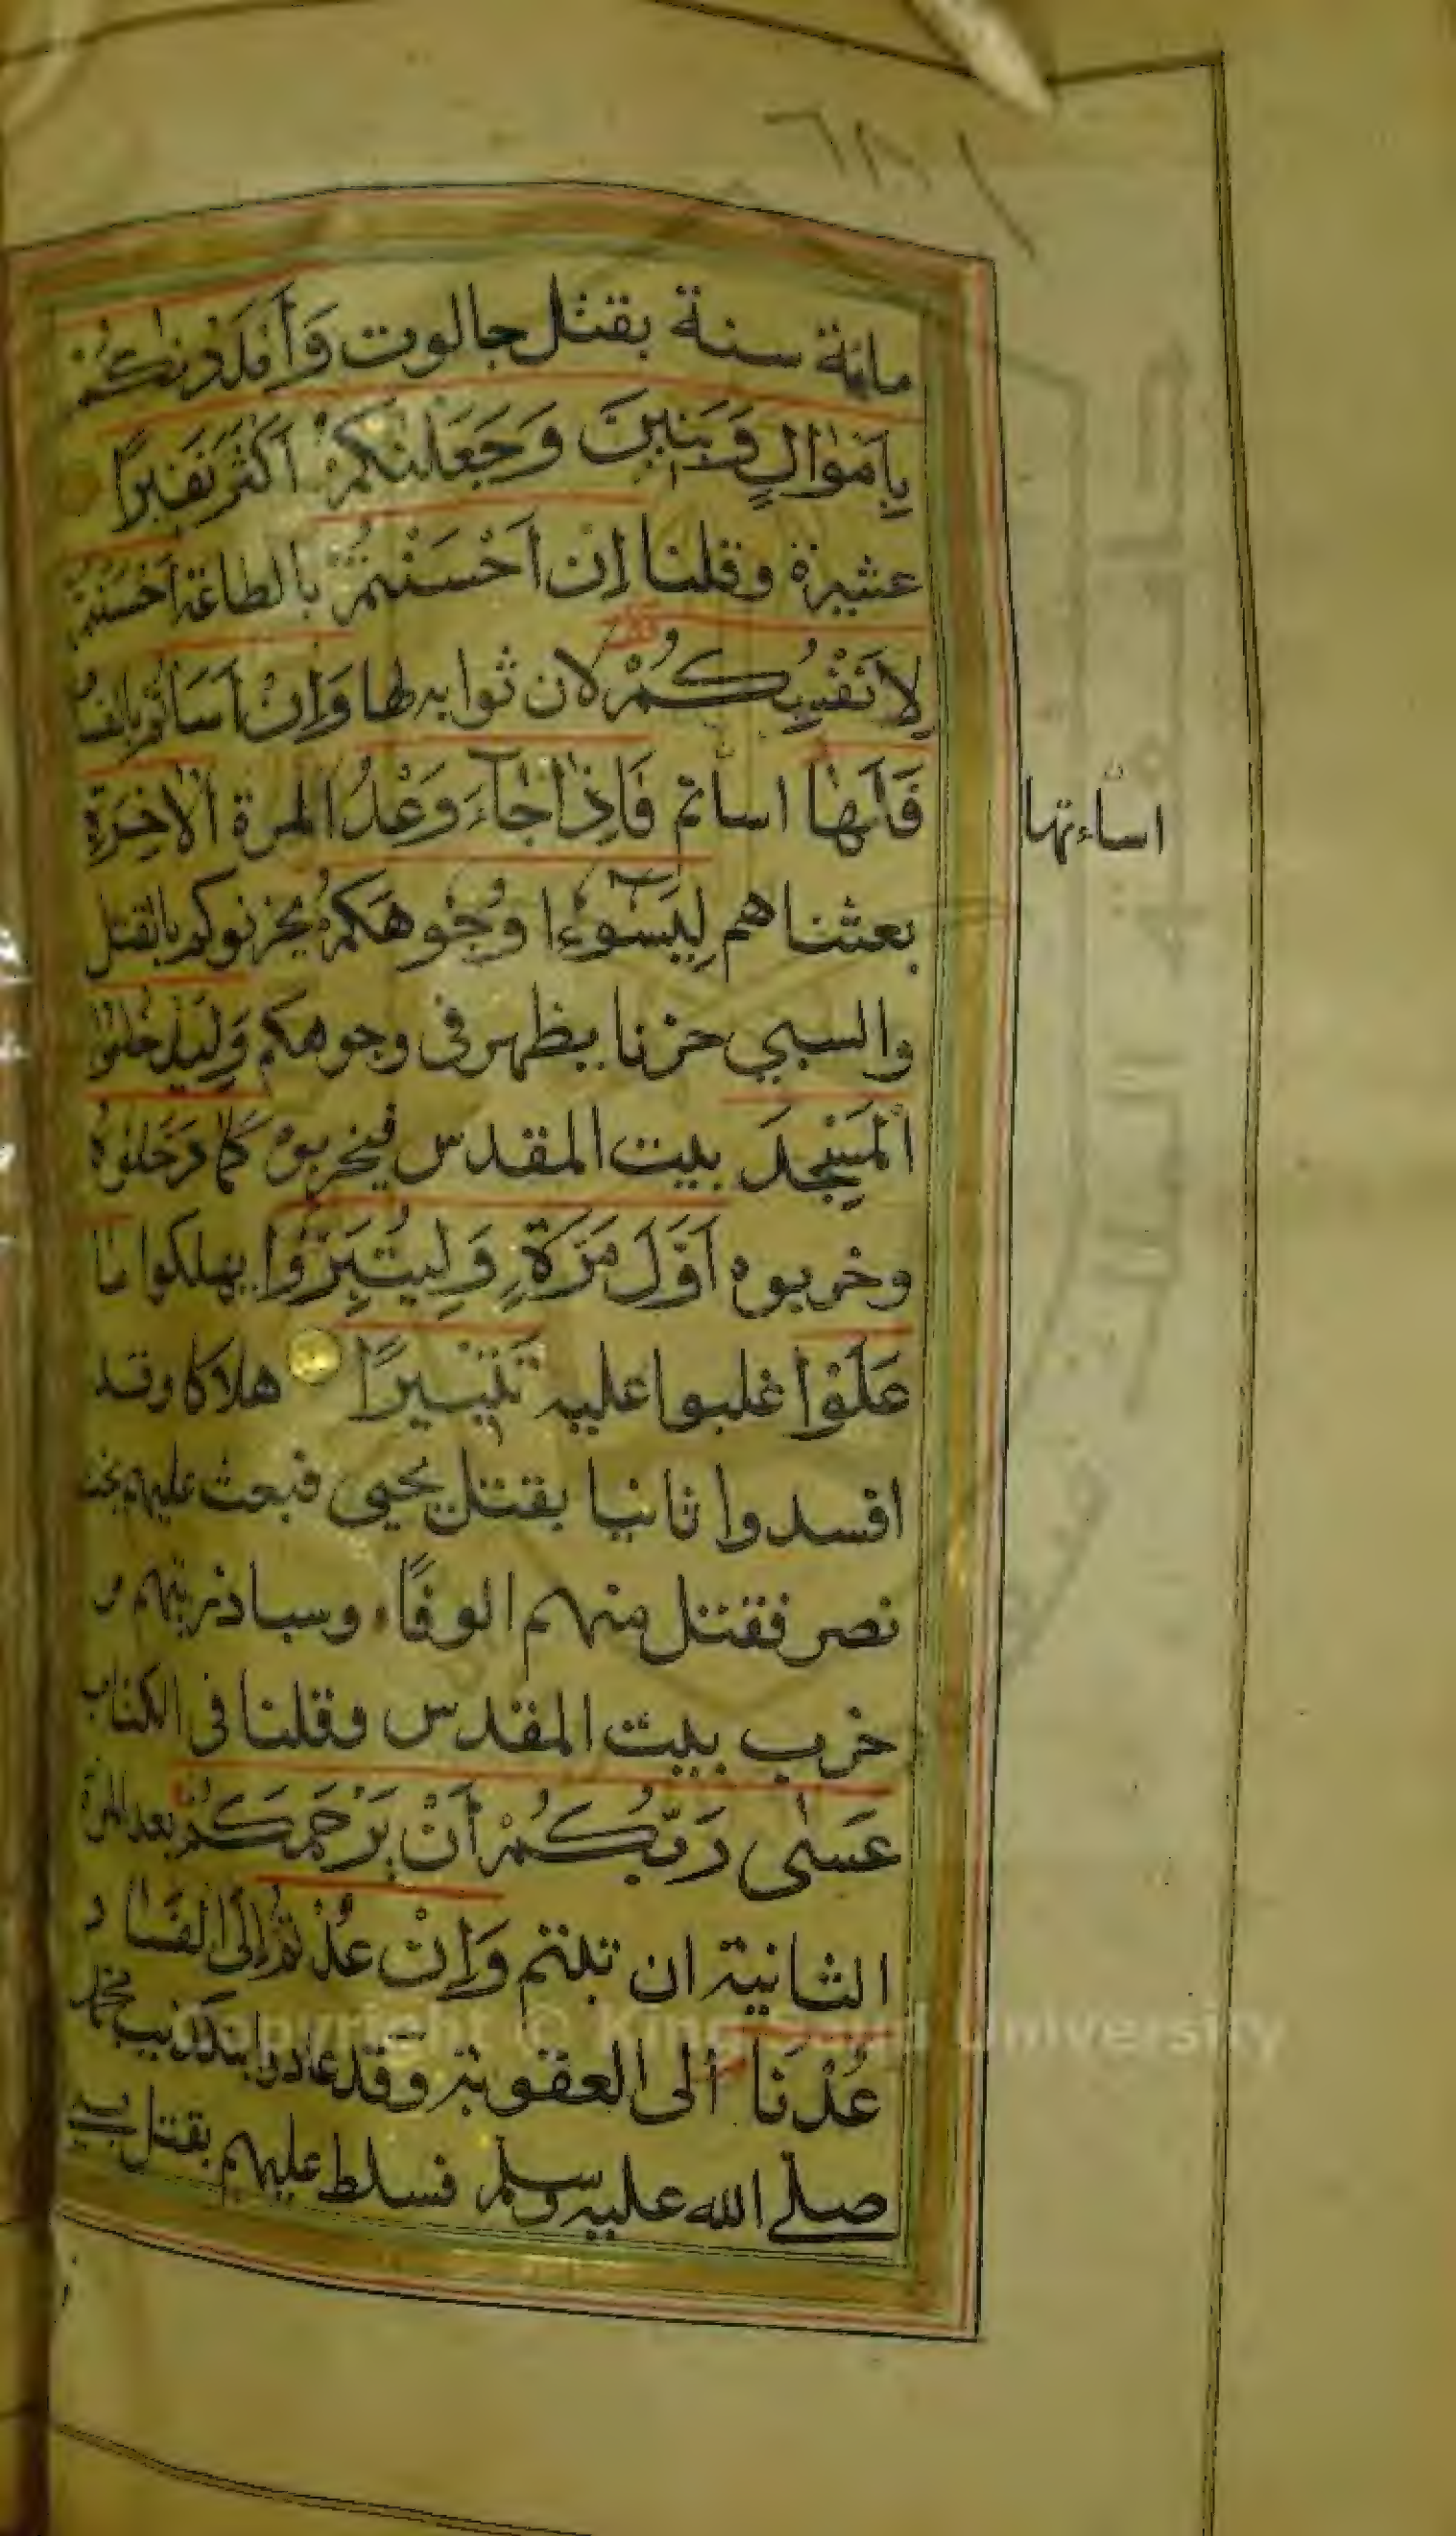 مائة سنة بقتل جالوت وَأَمْدَدْنٰكُمْ
بِاَمْوَالٍ وَبَنِينَ وَجَعَلْنٰكُمْ اَكْثَرَ نَفِيرًا
عشيرة وقلنا اِنْ اَحْسَنْتُمْ بالطاعة اَحْسَنْتُمْ
لِاَنْفُسِكُمْ لان ثوابه لها وَاِنْ اَسَاْتُمْ بالفسا
فَلَهَا اساتم فَاِذَا جَاۤءَ وَعْدُ المرة الْاٰخِرَةِ
اساءتها
بعثناهم لِيَسُوۤءٗا وُجُوهَكُمْ يحزنوكم بالقتل
والسبي حزنا يظهر فى وجوهكم وَلِيَدْخُلُوا
الْمَسْجِدَ بيت المقدس فيخربون كَمَا دَخَلُوهُ
وخربوه اَوَّلَ مَرَّةٍ وَلِيُتَبِّرُوا يهلكوا ما
عَلَوْا غلبوا عليه تَتْبِيرًا هلاكا وقد
افسدوا ثانيا بقتل يحيى فبعث عليهم بخت
نصر فقتل منهم الوفًا وسبا ذريتهم و
خرب بيت المقدس وقلنا فى الكتاب
عَسٰى رَبُّكُمْ أَنْ يَرْحَمَكُمْ بعد المرة
الثانية ان تبتم وَاِنْ عُدْتُمْ إلى الفساد
عُدْنَا الى العقوبة وقد عادوا بتكذيب محمد
صلى الله عليه وسلم فسلط عليهم بقتل
Copyright © King Saud University